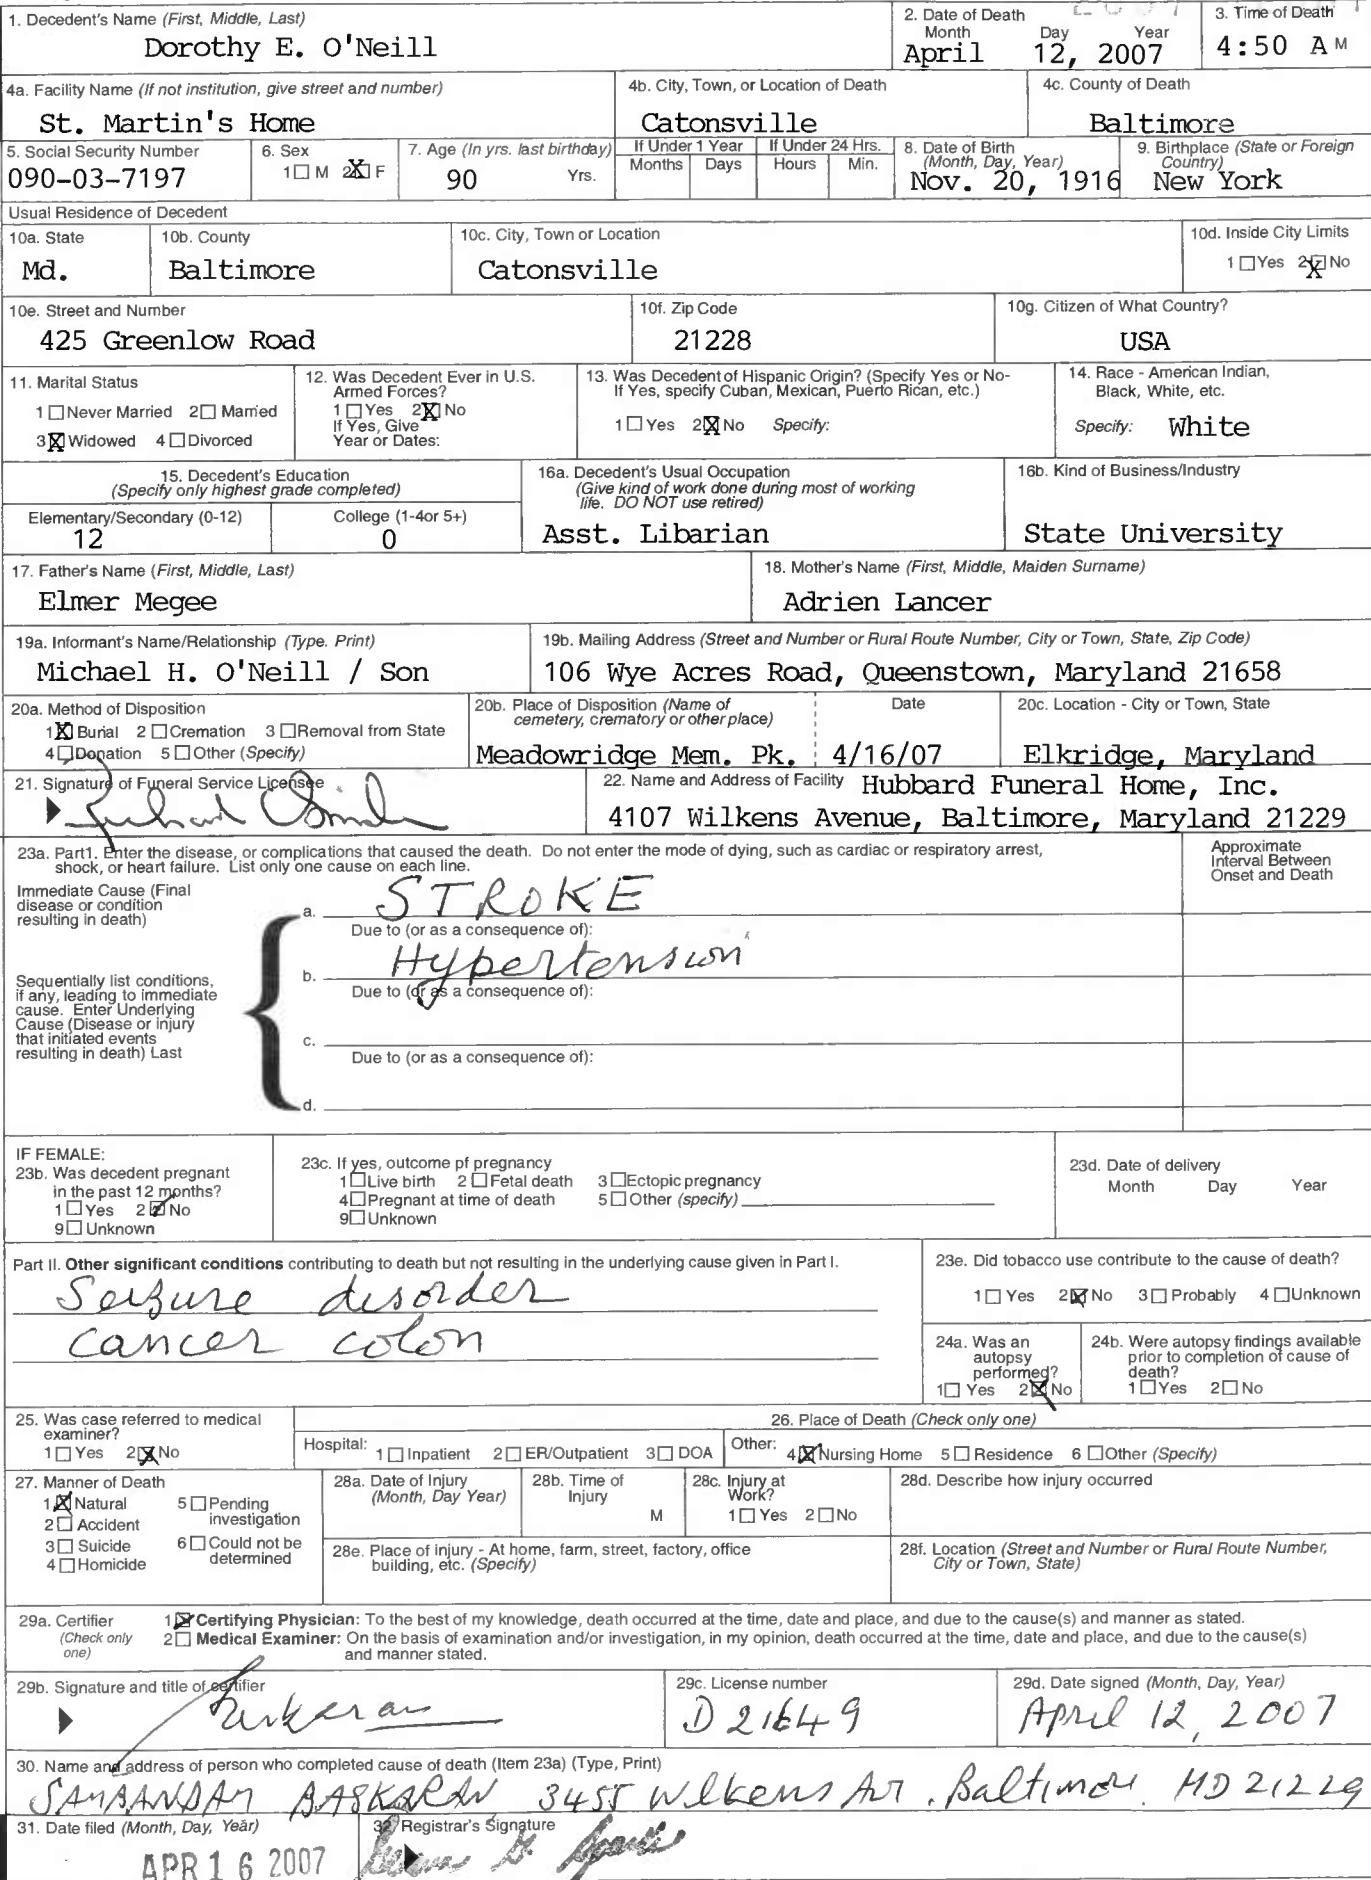 1. Decedent's Name (First, Middle, Last)
Dorothy E. O'Neill
2. Date of Death
Month Day Year
April 12, 2007
3. Time of Death
4:50 A M
4a. Facility Name (If not institution, give street and number)
St. Martin's Home
4b. City, Town, or Location of Death
Catonsville
4c. County of Death
Baltimore
5. Social Security Number
090-03-7197
6. Sex
1 M 2 X F
7. Age (In yrs. last birthday)
90 Yrs.
If Under 1 Year
Months Days
If Under 24 Hrs.
Hours Min.
8. Date of Birth
(Month, Day, Year)
Nov. 20, 1916
9. Birthplace (State or Foreign
Country)
New York
Usual Residence of Decedent
10a. State
Md.
10b. County
Baltimore
10c. City, Town or Location
Catonsville
10d. Inside City Limits
1 Yes 2 X No
10e. Street and Number
425 Greenlow Road
10f. Zip Code
21228
10g. Citizen of What Country?
USA
11. Marital Status
1 Never Married 2 Married
3 X Widowed 4 Divorced
12. Was Decedent Ever in U.S.
Armed Forces?
1 Yes 2 X No
If Yes, Give
Year or Dates:
13. Was Decedent of Hispanic Origin? (Specify Yes or No-
If Yes, specify Cuban, Mexican, Puerto Rican, etc.)
1 Yes 2 X No Specify:
14. Race - American Indian,
Black, White, etc.
Specify: White
15. Decedent's Education
(Specify only highest grade completed)
Elementary/Secondary (0-12)
12
College (1-4or 5+)
0
16a. Decedent's Usual Occupation
(Give kind of work done during most of working
life. DO NOT use retired)
Asst. Libarian
16b. Kind of Business/Industry
State University
17. Father's Name (First, Middle, Last)
Elmer Megee
18. Mother's Name (First, Middle, Maiden Surname)
Adrien Lancer
19a. Informant's Name/Relationship (Type. Print)
Michael H. O'Neill / Son
19b. Mailing Address (Street and Number or Rural Route Number, City or Town, State, Zip Code)
106 Wye Acres Road, Queenstown, Maryland 21658
20a. Method of Disposition
1 X Burial 2 Cremation 3 Removal from State
4 Donation 5 Other (Specify)
20b. Place of Disposition (Name of
cemetery, crematory or other place)
Meadowridge Mem. Pk.
Date
4/16/07
20c. Location - City or Town, State
Elkridge, Maryland
21. Signature of Funeral Service Licensee
22. Name and Address of Facility Hubbard Funeral Home, Inc.
4107 Wilkens Avenue, Baltimore, Maryland 21229
23a. Part1. Enter the disease, or complications that caused the death. Do not enter the mode of dying, such as cardiac or respiratory arrest,
shock, or heart failure. List only one cause on each line.
Approximate
Interval Between
Onset and Death
Immediate Cause (Final
disease or condition
resulting in death)
a. STROKE
Due to (or as a consequence of):
b. Hypertension
Due to (or as a consequence of):
Sequentially list conditions,
if any, leading to immediate
cause. Enter Underlying
Cause (Disease or injury
that initiated events
resulting in death) Last
c.
Due to (or as a consequence of):
d.
IF FEMALE:
23b. Was decedent pregnant
in the past 12 months?
1 Yes 2 X No
9 Unknown
23c. If yes, outcome pf pregnancy
1 Live birth 2 Fetal death 3 Ectopic pregnancy
4 Pregnant at time of death 5 Other (specify)
9 Unknown
23d. Date of delivery
Month Day Year
Part II. Other significant conditions contributing to death but not resulting in the underlying cause given in Part I.
Seizure disorder
cancer colon
23e. Did tobacco use contribute to the cause of death?
1 Yes 2 X No 3 Probably 4 Unknown
24a. Was an
autopsy
performed?
1 Yes 2 X No
24b. Were autopsy findings available
prior to completion of cause of
death?
1 Yes 2 No
25. Was case referred to medical
examiner?
1 Yes 2 X No
26. Place of Death (Check only one)
Hospital: 1 Inpatient 2 ER/Outpatient 3 DOA
Other: 4 X Nursing Home 5 Residence 6 Other (Specify)
27. Manner of Death
1 X Natural
2 Accident
3 Suicide
4 Homicide
5 Pending
investigation
6 Could not be
determined
28a. Date of Injury
(Month, Day Year)
28b. Time of
Injury
M
28c. Injury at
Work?
1 Yes 2 No
28d. Describe how injury occurred
28e. Place of injury - At home, farm, street, factory, office
building, etc. (Specify)
28f. Location (Street and Number or Rural Route Number,
City or Town, State)
29a. Certifier
(Check only
one)
1 X Certifying Physician: To the best of my knowledge, death occurred at the time, date and place, and due to the cause(s) and manner as stated.
2 Medical Examiner: On the basis of examination and/or investigation, in my opinion, death occurred at the time, date and place, and due to the cause(s)
and manner stated.
29b. Signature and title of certifier
29c. License number
D 21649
29d. Date signed (Month, Day, Year)
April 12, 2007
30. Name and address of person who completed cause of death (Item 23a) (Type, Print)
SAMBANDAM BASKARAN 3455 Wilkens Av. Baltimore MD 21229
31. Date filed (Month, Day, Year)
APR 16 2007
32. Registrar's Signature